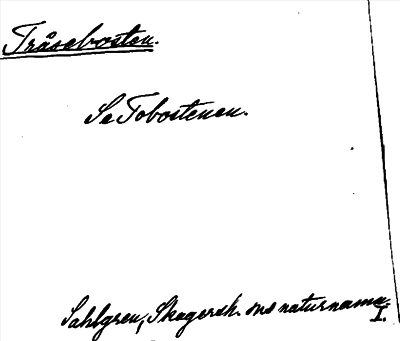 Tråsebosten.
Se Tobostenen.
Sahlgren, Skagersh. sns naturnamn
I.